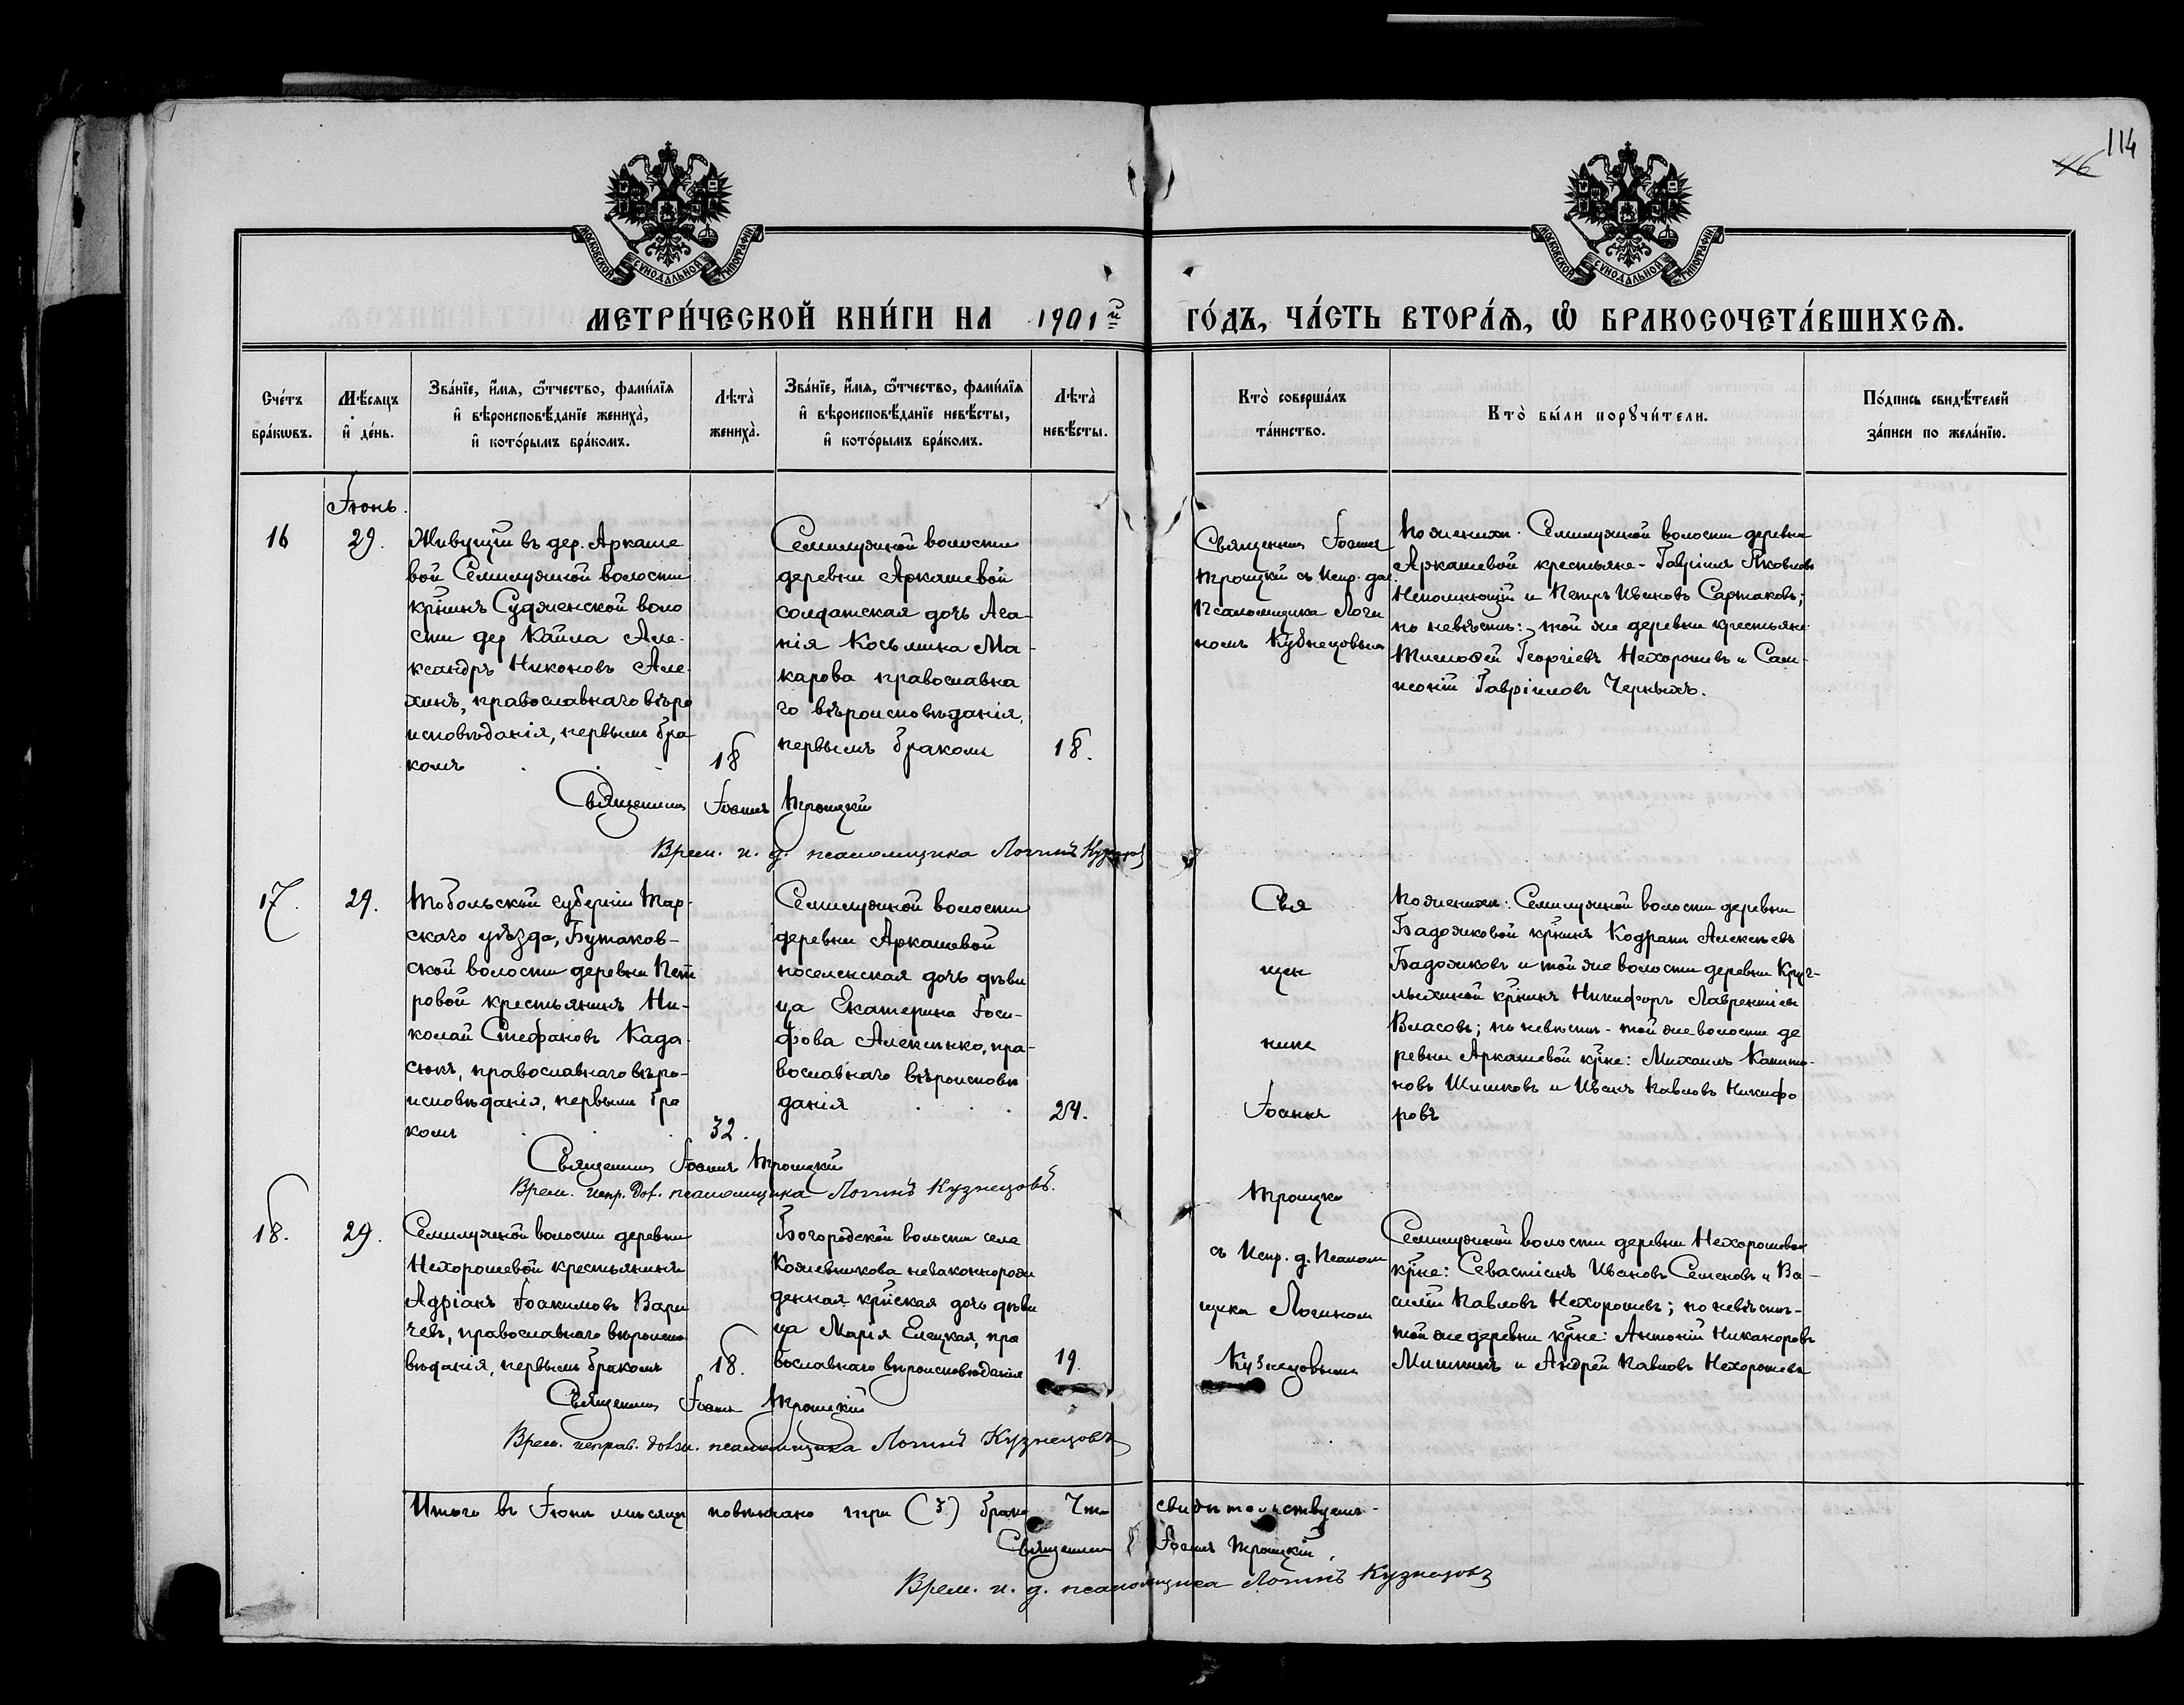 114
46
МОСКОВСКОЙ СѴНОДАЛЬНОЙ ТИПОГРАФІИ
МОСКОВСКОЙ СѴНОДАЛЬНОЙ ТИПОГРАФІИ
МЕТРИ́ЧЕСКОЙ КНИ́ГИ НА 1901й ГО́ДЪ, ЧА́СТЬ ВТОРА́Ѧ, Ѽ БРАКОСОЧЕТА́ВШИХСѦ.
Сче́тъ
бра́кѡвъ.
Мѣ́сяцъ
и҆ де́нь.
Зва́нїе, и҆́мя, ѻ҆́тчество, фами́лїя
и҆ вѣроисповѣ́данїе жениха̀,
и҆ кото́рымъ бра́комъ.
Лѣта̀
жениха̀.
Зва́нїе, и҆́мя, ѻ҆́тчество, фами́лїя
и҆ вѣроисповѣ́данїе невѣ́сты,
и҆ кото́рымъ бра́комъ.
Лѣта̀
невѣ́сты.
Кто̀ соверша́лъ
та́инство.
Кто̀ бы́ли порꙋчи́тели.
По́дпись свидѣ́телей
за́писи по жела́нїю.
Іюнь.
16
29.
Живущій въ дер. Аркаше
вой Семилужной волости
кр̃нинъ Судженской воло
сти дер Кайла Але-
ксандръ Никоновъ Але-
хинъ, православнаго вѣро
исповѣданія, первымъ бра
комъ
18
Семилужной волости
деревни Аркашевой
солдатская дочь Ага-
нія Косьмина Ма-
карова православна
го вѣроисповѣданія,
первымъ бракомъ
18.
Священникъ Іоаннъ
Троицкій съ Испр. дол.
Псаломщика Логи
номъ Кузнецовымъ
По женихѣ. Семилужной волости деревни
Аркашевой крестьяне- Гавріилъ Яковлевъ
Непомнющій и Петръ Ивановъ Сартаковъ;
по невѣстѣ:- той же деревни крестьяне
Тимофей Георгіевъ Нехорошевъ и Сам-
псоній Гавріиловъ Черныхъ.
Священникъ Іоаннъ Троицкій
Врем. и. д. псаломщика Логинъ Кузнецовъ
17.
29.
Тобольской губерніи Тар-
скаго уѣзда, Бутаков-
ской волости деревни Пет
ровой крестьянинъ Ни-
колай Стефановъ Када-
сюкъ, православнаго вѣро-
исповѣданія, первымъ бра
комъ
32.
Семилужной волости
деревни Аркашевой
поселенская дочь дѣви
ца Екатерина Іоси-
фова Алексѣнко, пра-
вославнаго вѣроисповѣ
данія
24.
Свя
щен
никъ
Іоаннъ
Троицкій
съ Испр. д. Псалом
щика Логином
Кузнецовымъ
По женихѣ: Семилужной волости деревни
Бадожковой кр̃нинъ Кодратъ Алексѣевъ
Бадожковъ и той же волости деревни Круг-
лыхиной кр̃нинъ Никифоръ Лаврентіевъ
Власовъ; по невѣстѣ- той же волости де
ревни Аркашевой кр̃не: Михаилъ Капито-
новъ Шишковъ и Иванъ Павловъ Никифо
ровъ
Священникъ Іоаннъ Троицкій
Врем. испр. дол. псаломщика Логинъ Кузнецовъ.
18.
29.
Семилужной волости деревни
Нехорошевой крестьянинъ
Адріанъ Іоакимовъ Вари
чевъ, православнаго вѣроиспо
вѣданія, первымъ бракомъ
18.
Богородской волости села
Кожевникова незаконнорож
денная кр̃нская дочь дѣви
ца Марія Елецкая, пра
вославнаго вѣроисповѣданія
19.
Семилужной волости деревни Нехорошевой
кр̃не: Севастіанъ Ивановъ Семеновъ и Ва-
силій Павловъ Нехорошевъ; по невѣстѣ-
той же деревни кр̃не: Антоній Никаноровъ
Мишинъ и Андрей Павловъ Нехорошевъ
Священникъ Іоаннъ Троицкій
Врем. исправ. должн. псаломщика Логинъ Кузнецовъ
Итого въ Іюнѣ мѣсяцѣ повѣнчано три (3) брака Что свидѣтельствуемъ-
Священникъ Іоаннъ Троицкій,
Врем. и. д. псаломщика Логинъ Кузнецовъ